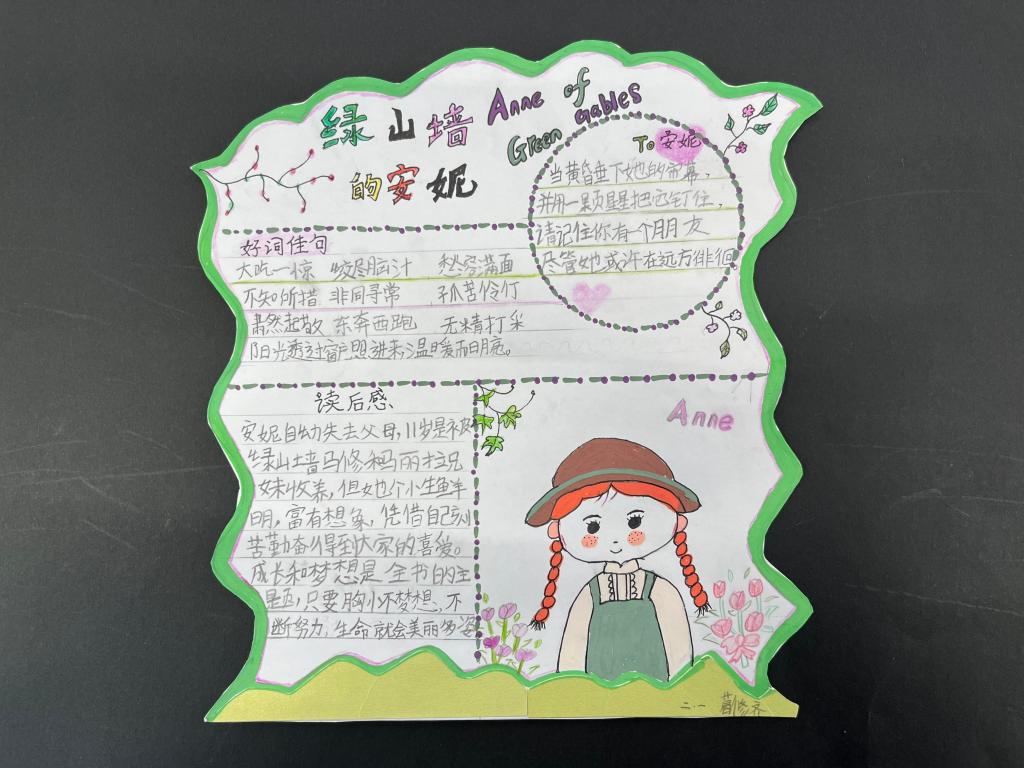 绿山墙 Anne of
Green Gables
的安妮
To 安妮
当黄昏垂下她的帘幕,
并用一颗星星把它钉住,
请记住你有一个朋友
尽管她或许在远方徘徊
好词佳句
大吃一惊 绞尽脑汁 愁容满面
不知所措 非同寻常 孤苦伶仃
肃然起敬 东奔西跑 无精打采
阳光透过窗户照进来,温暖而明亮。
读后感
安妮自幼失去父母,11岁是被
绿山墙马修和玛丽拉兄
妹收养,但她个小生鲜
明,富有想象,凭借自己刻
苦勤奋得到大家的喜爱。
成长和梦想是全书的主
是页,只要胸怀梦想,不
断努力,生命就会美丽多姿
Anne
二.一